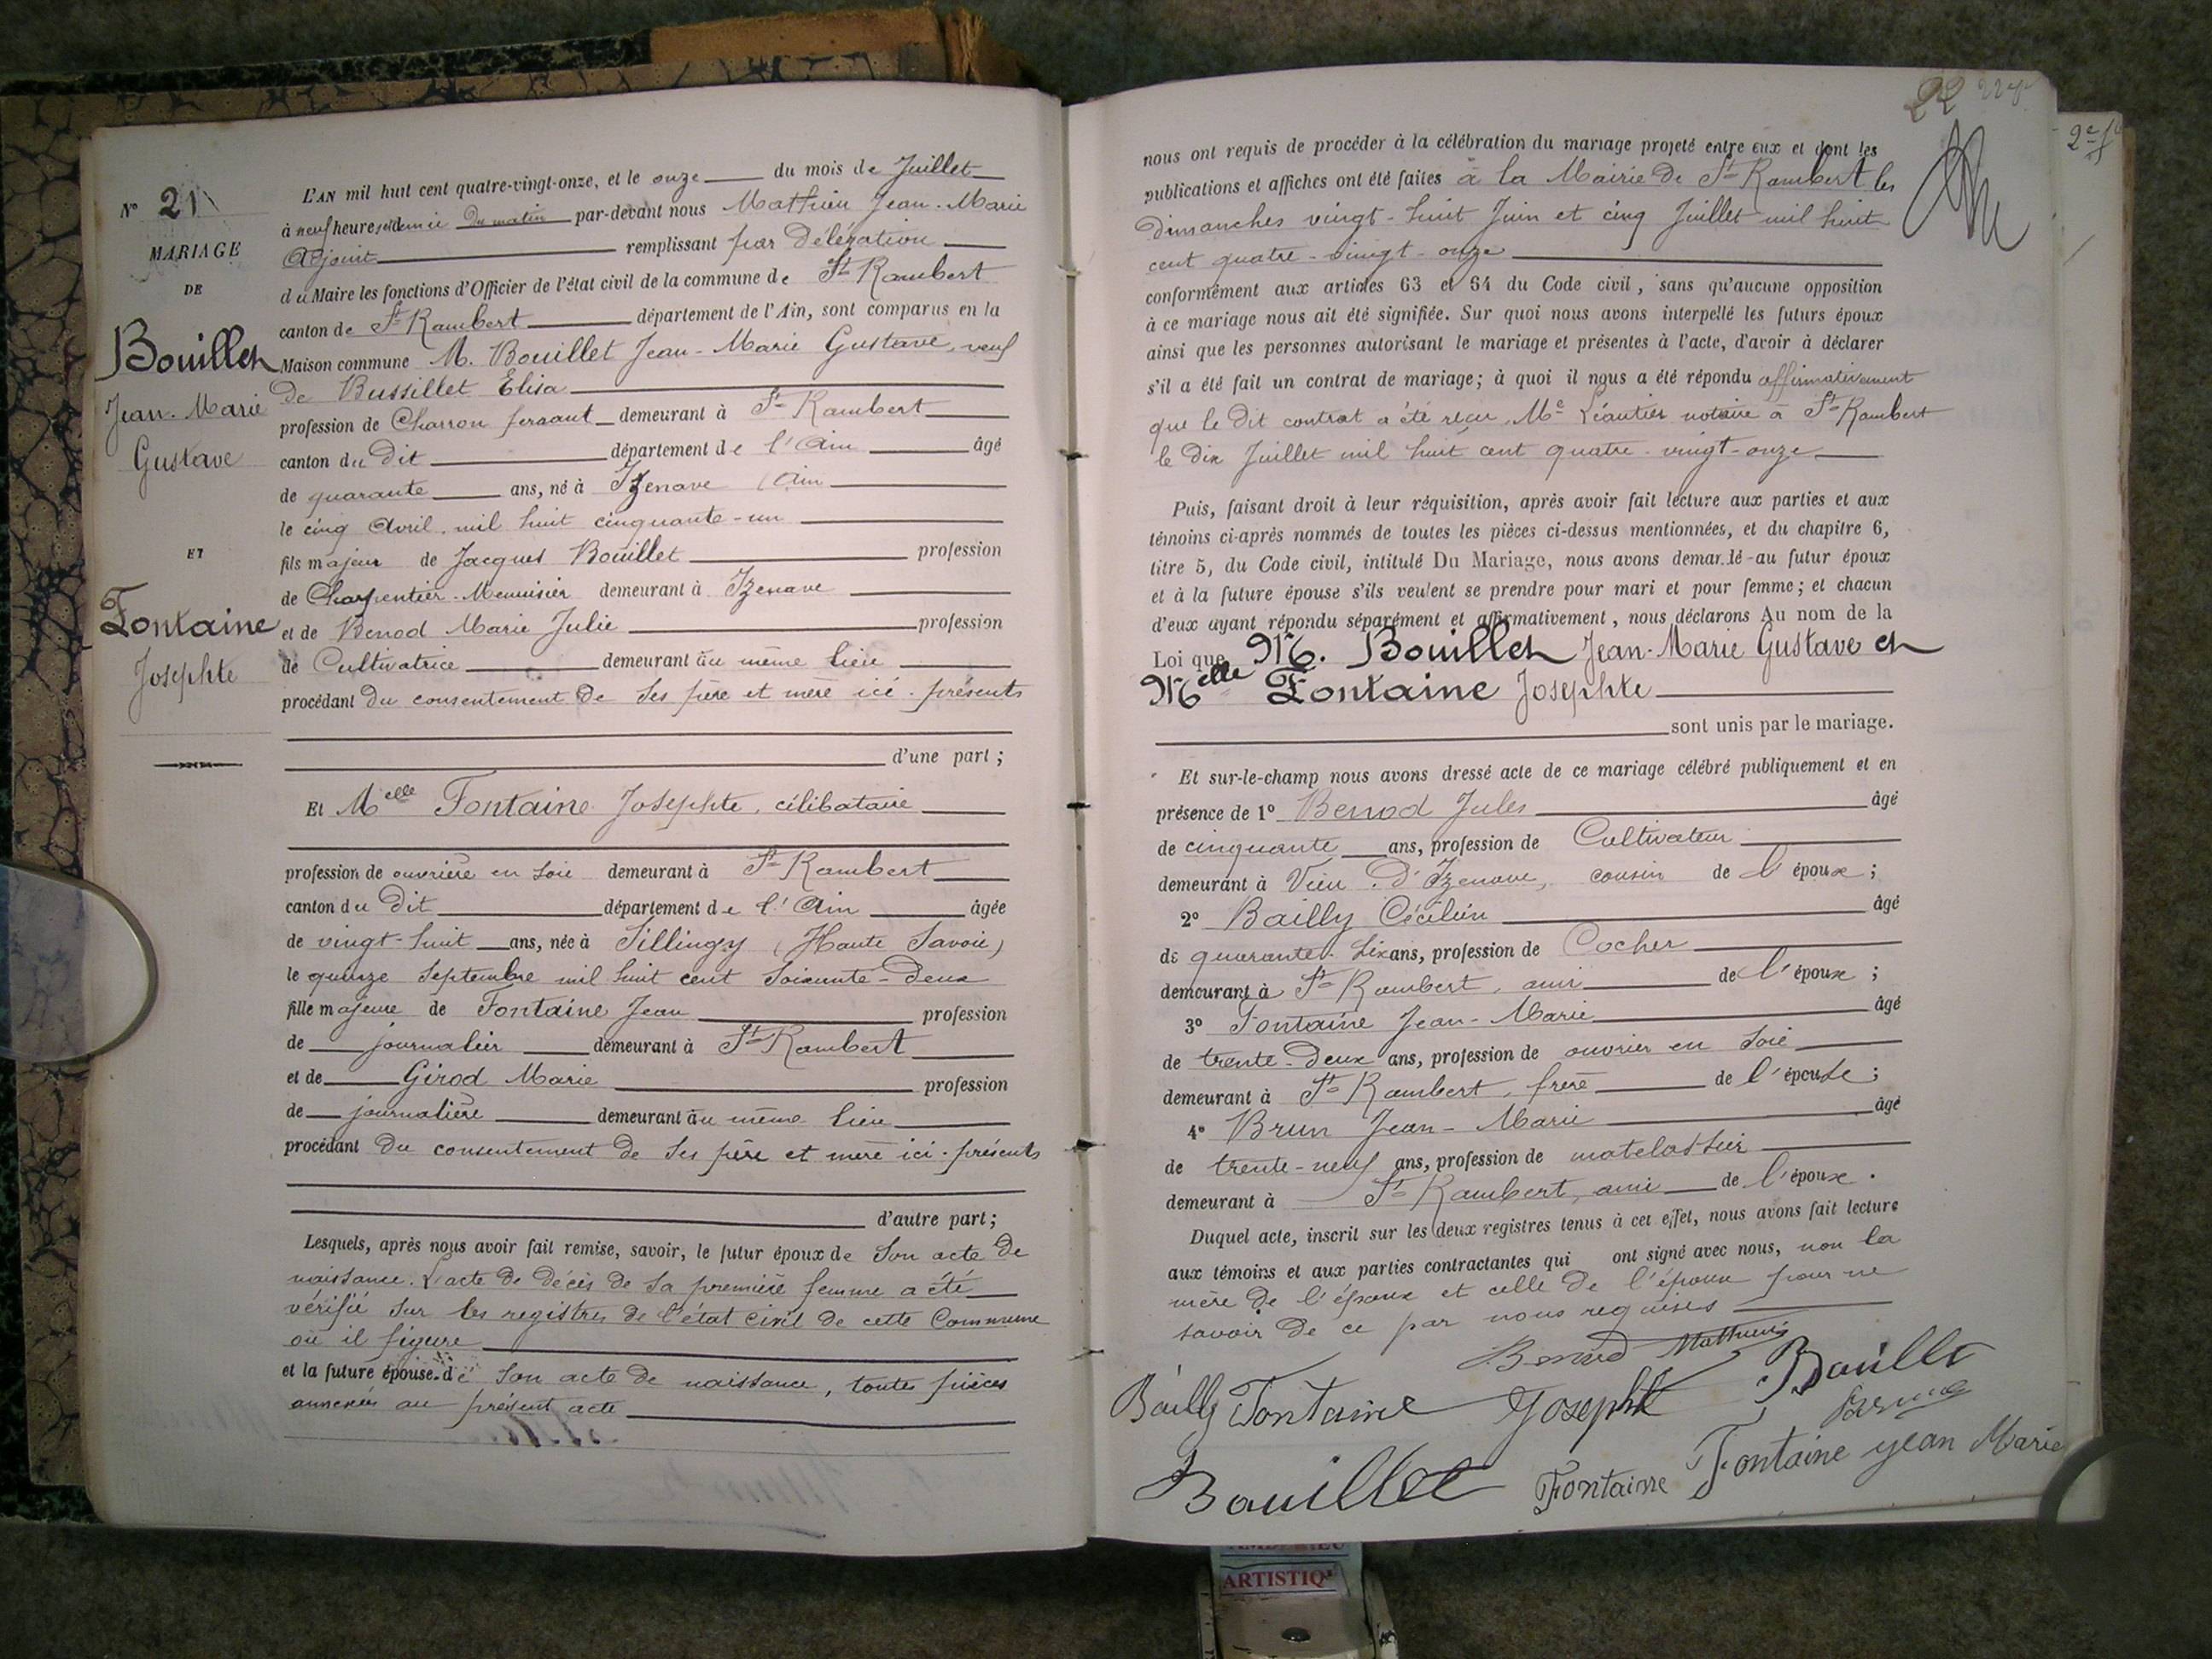 N° 21
MARIAGE
DE
Bouillet
Jean-Marie
Gustave
ET
Fontaine
Josephte
L'AN mil huit cent quatre-vingt-onze, et le onze du mois de Juillet
à neuf heures et demie du matin par-devant nous Mathieu Jean-Marie
Adjoint remplissant par Délégation
du Maire les fonctions d'Officier de l'état civil de la commune de St Rambert
canton de St Rambert département de l'Ain, sont comparus en la
Maison commune M. Bouillet Jean-Marie Gustave, veuf
de Bussillet Elisa
profession de Charron ferrant demeurant à St Rambert
canton du dit département de l'Ain âgé
de quarante ans, né à Izenave (Ain
le cinq Avril mil huit cinquante-un
fils majeur de Jacques Bouillet profession
de Charpentier-Menuisier demeurant à Izenave
et de Benod Marie Julie profession
de Cultivatrice demeurant au même lieu
procédant du consentement de ses père et mère ici présents
d'une part ;
Et Melle Fontaine Josephte, célibataire
profession de ouvrière en soie demeurant à St Rambert
canton du dit département de l'Ain âgée
de vingt-huit ans, née à Sillingy (Haute Savoie)
le quinze Septembre mil huit cent soixante-deux
fille majeure de Fontaine Jean profession
de journalier demeurant à St Rambert
et de Girod Marie profession
de journalière demeurant au même lieu
procédant du consentement de ses père et mère ici présents
d'autre part ;
Lesquels, après nous avoir fait remise, savoir, le futur époux de son acte de
naissance. L'acte de décès de sa première femme a été
vérifié sur les registres de l'état civil de cette Commune
où il figure
et la future épouse de son acte de naissance, toutes pièces
annexées au présent acte
22
2e f
nous ont requis de procéder à la célébration du mariage projeté entre eux et dont les
publications et affiches ont été faites à la Mairie de St Rambert les
dimanches vingt-huit Juin et cinq Juillet mil huit
cent quatre-vingt-onze
conformément aux articles 63 et 64 du Code civil, sans qu'aucune opposition
à ce mariage nous ait été signifiée. Sur quoi nous avons interpellé les futurs époux
ainsi que les personnes autorisant le mariage et présentes à l'acte, d'avoir à déclarer
s'il a été fait un contrat de mariage ; à quoi il nous a été répondu affirmativement
que le dit contrat a été reçu Me Léautier notaire à St Rambert
le dix Juillet mil huit cent quatre-vingt-onze
Puis, faisant droit à leur réquisition, après avoir fait lecture aux parties et aux
témoins ci-après nommés de toutes les pièces ci-dessus mentionnées, et du chapitre 6,
titre 5, du Code civil, intitulé Du Mariage, nous avons demandé au futur époux
et à la future épouse s'ils veulent se prendre pour mari et pour femme ; et chacun
d'eux ayant répondu séparément et affirmativement, nous déclarons Au nom de la
Loi que M. Bouillet Jean-Marie Gustave et
Melle Fontaine Josephte
sont unis par le mariage.
Et sur-le-champ nous avons dressé acte de ce mariage célébré publiquement et en
présence de 1° Benod Jules âgé
de cinquante ans, profession de Cultivateur
demeurant à Vieu d'Izenave, cousin de l'époux ;
2° Bailly Cécilien âgé
de quarante-six ans, profession de Cocher
demeurant à St Rambert, ami de l'époux ;
3° Fontaine Jean-Marie âgé
de trente-deux ans, profession de ouvrier en soie
demeurant à St Rambert, frère de l'épouse ;
4° Brun Jean-Marie âgé
de trente-neuf ans, profession de matelassier
demeurant à St Rambert, ami de l'époux.
Duquel acte, inscrit sur les deux registres tenus à cet effet, nous avons fait lecture
aux témoins et aux parties contractantes qui ont signé avec nous, non la
mère de l'épouse et celle de l'époux pour ne
savoir de ce par nous requises
Benod Mathieu
Bailly Fontaine Josephte Bouillet
Brun
Bouillet Fontaine Fontaine jean Marie
ARTISTIQ